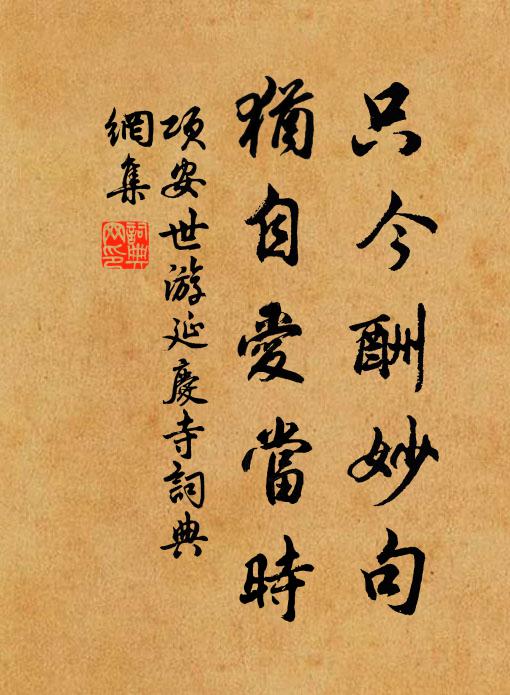 只今酬妙句
猶自愛當時
項安世游延慶寺詞典
網集
詞典網印